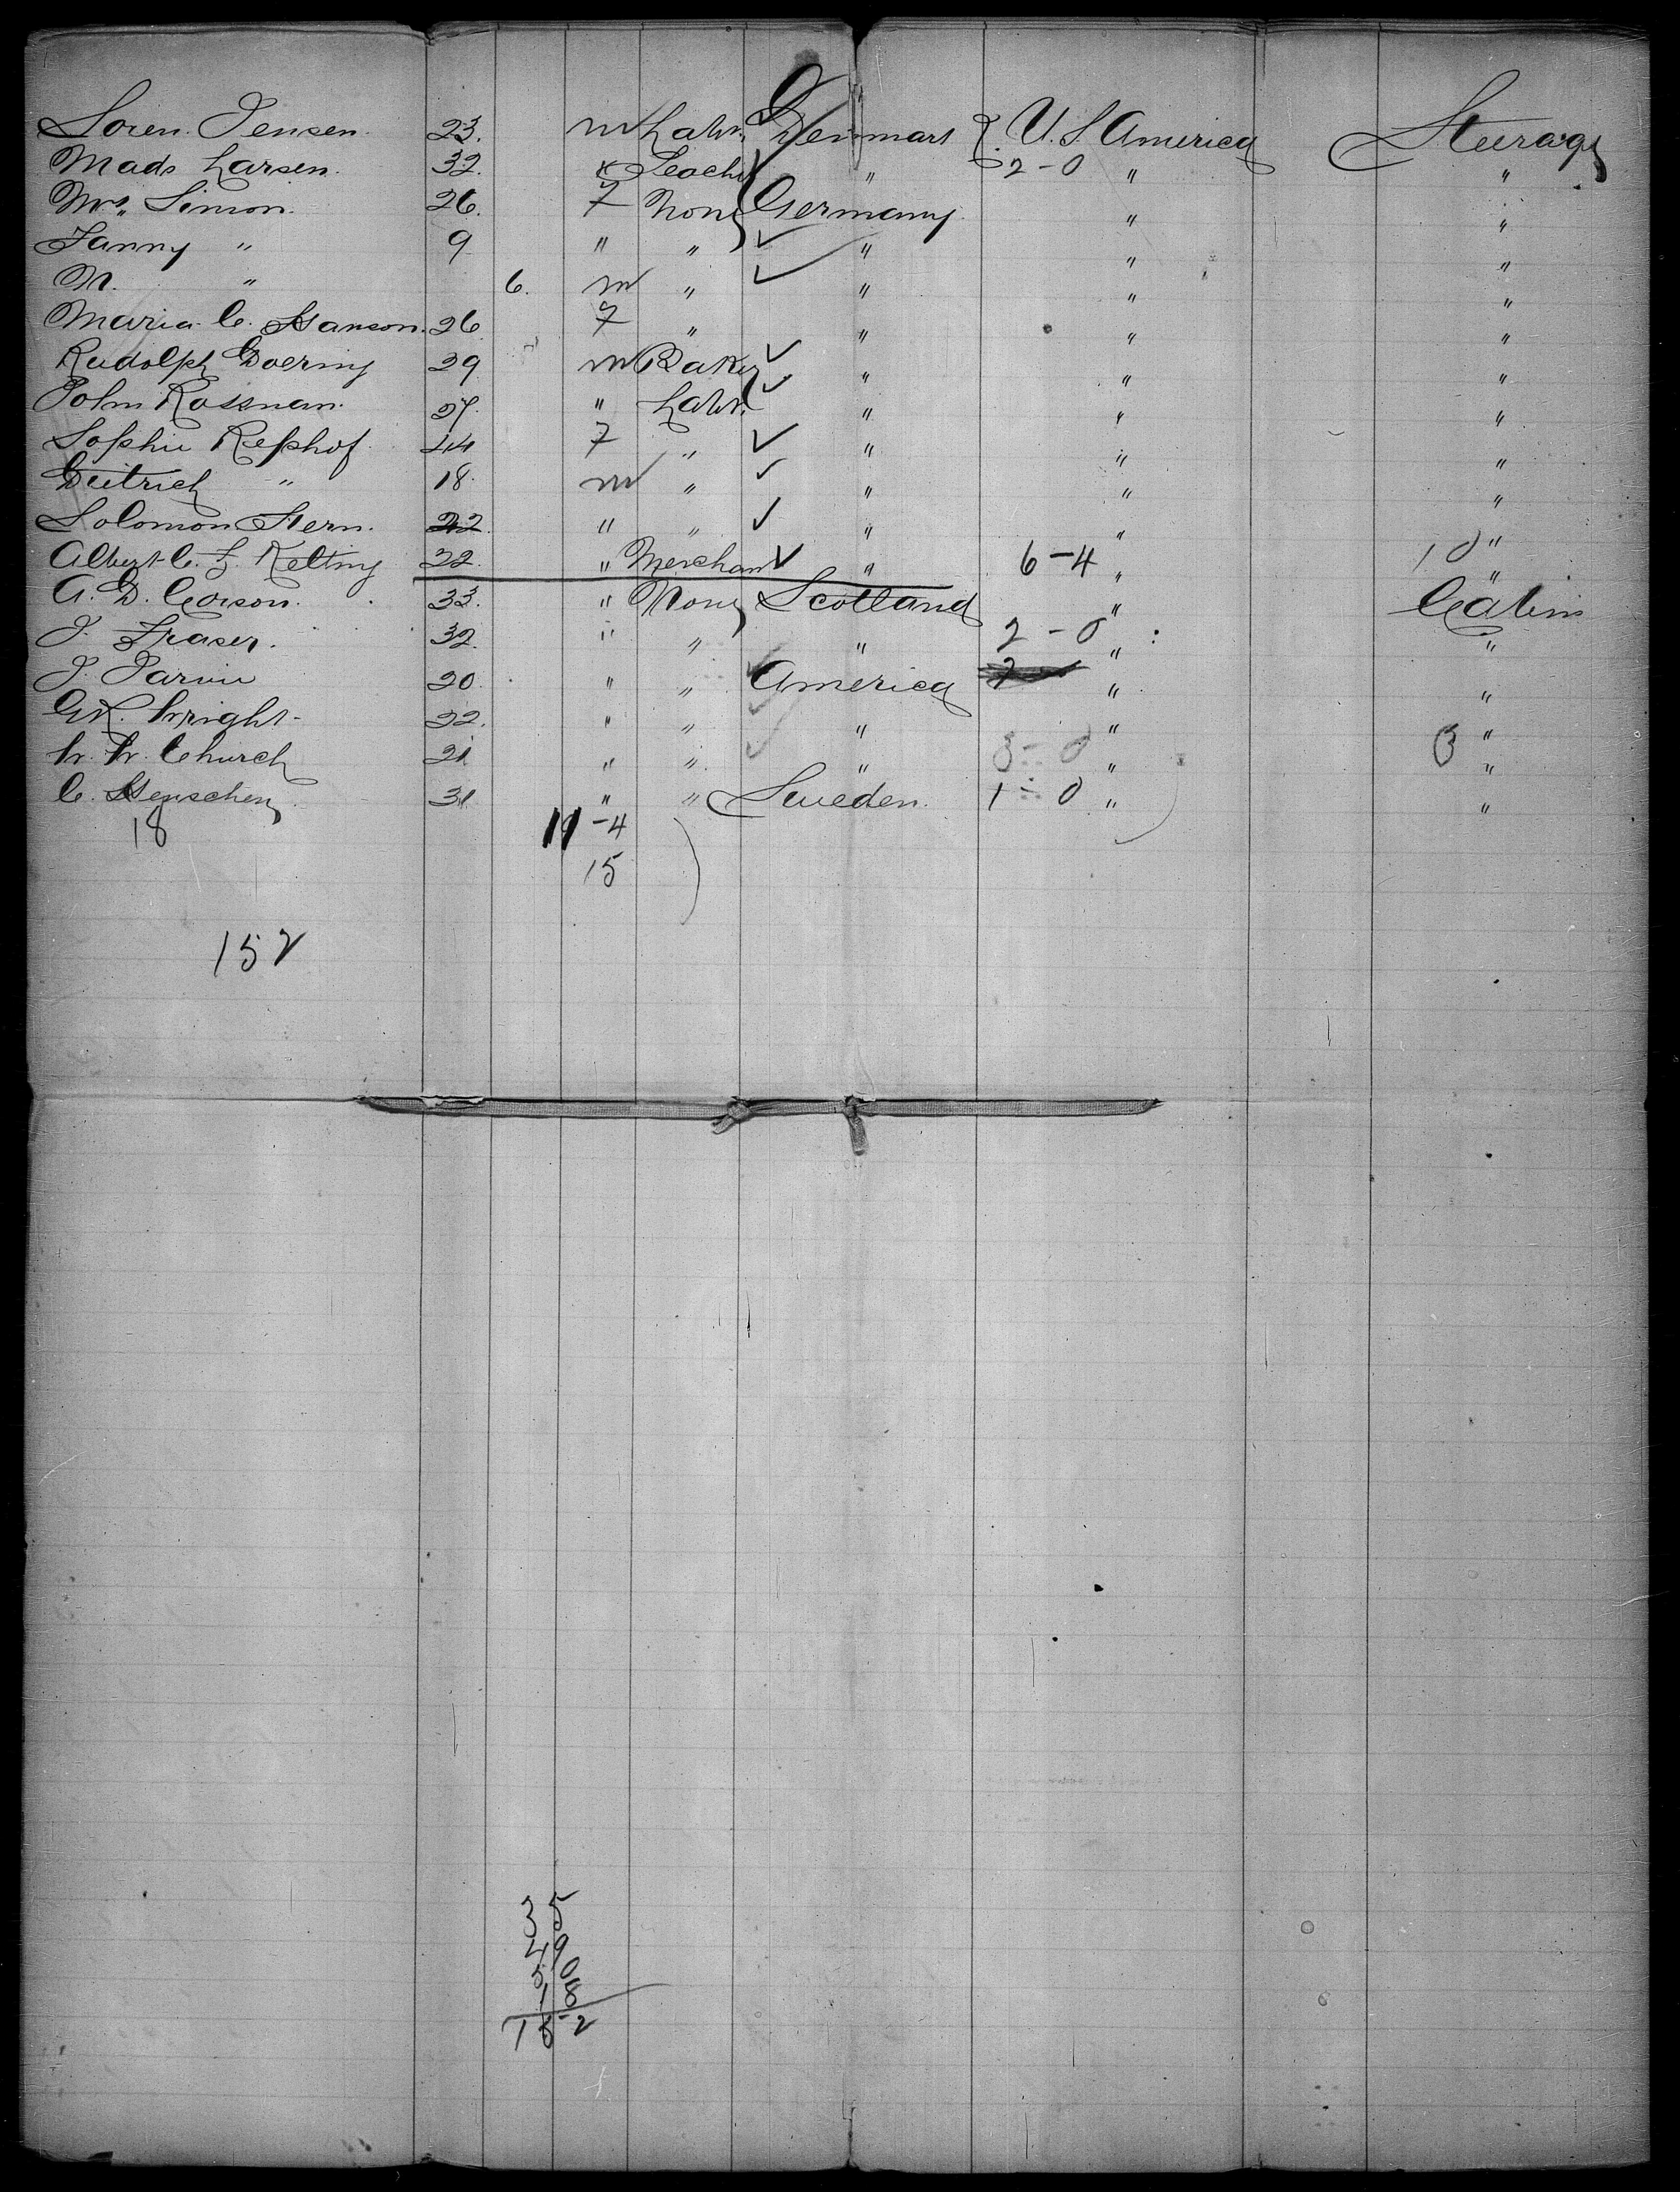 Soren Jensen 23. m Labr. Denmark U. S. America Steerage
Mads Larsen. 32. " Teacher " 2-0 " "
Mrs. Simon. 26. F None Germany " "
Fanny " 9 " " " " "
M. " 6. m " " " "
Maria C. Hanson. 26 F " " " "
Rudolph Doering 29 m Baker " " "
John Rossman. 27. " Labr. " " "
Sophie Rephof 44 F " " " "
Deitrich " 18. m " " " "
Solomon Stern. 22. " " " " "
Albert C. F. Kelting 32. " Merchant " 6-4 " 10 "
A. D. Corson. 33. " None Scotland " Cabin
J. Fraser. 32. " " " 2-0 " "
J. Jarvie 20. " " America " "
G. Wright 22. " " " " "
W. W. Church 21 " " " 3-0 " 3 "
C. Henschen 31 " " Sweden. 1-0 " "
18 11-4
15
152
35
49
50
18
152